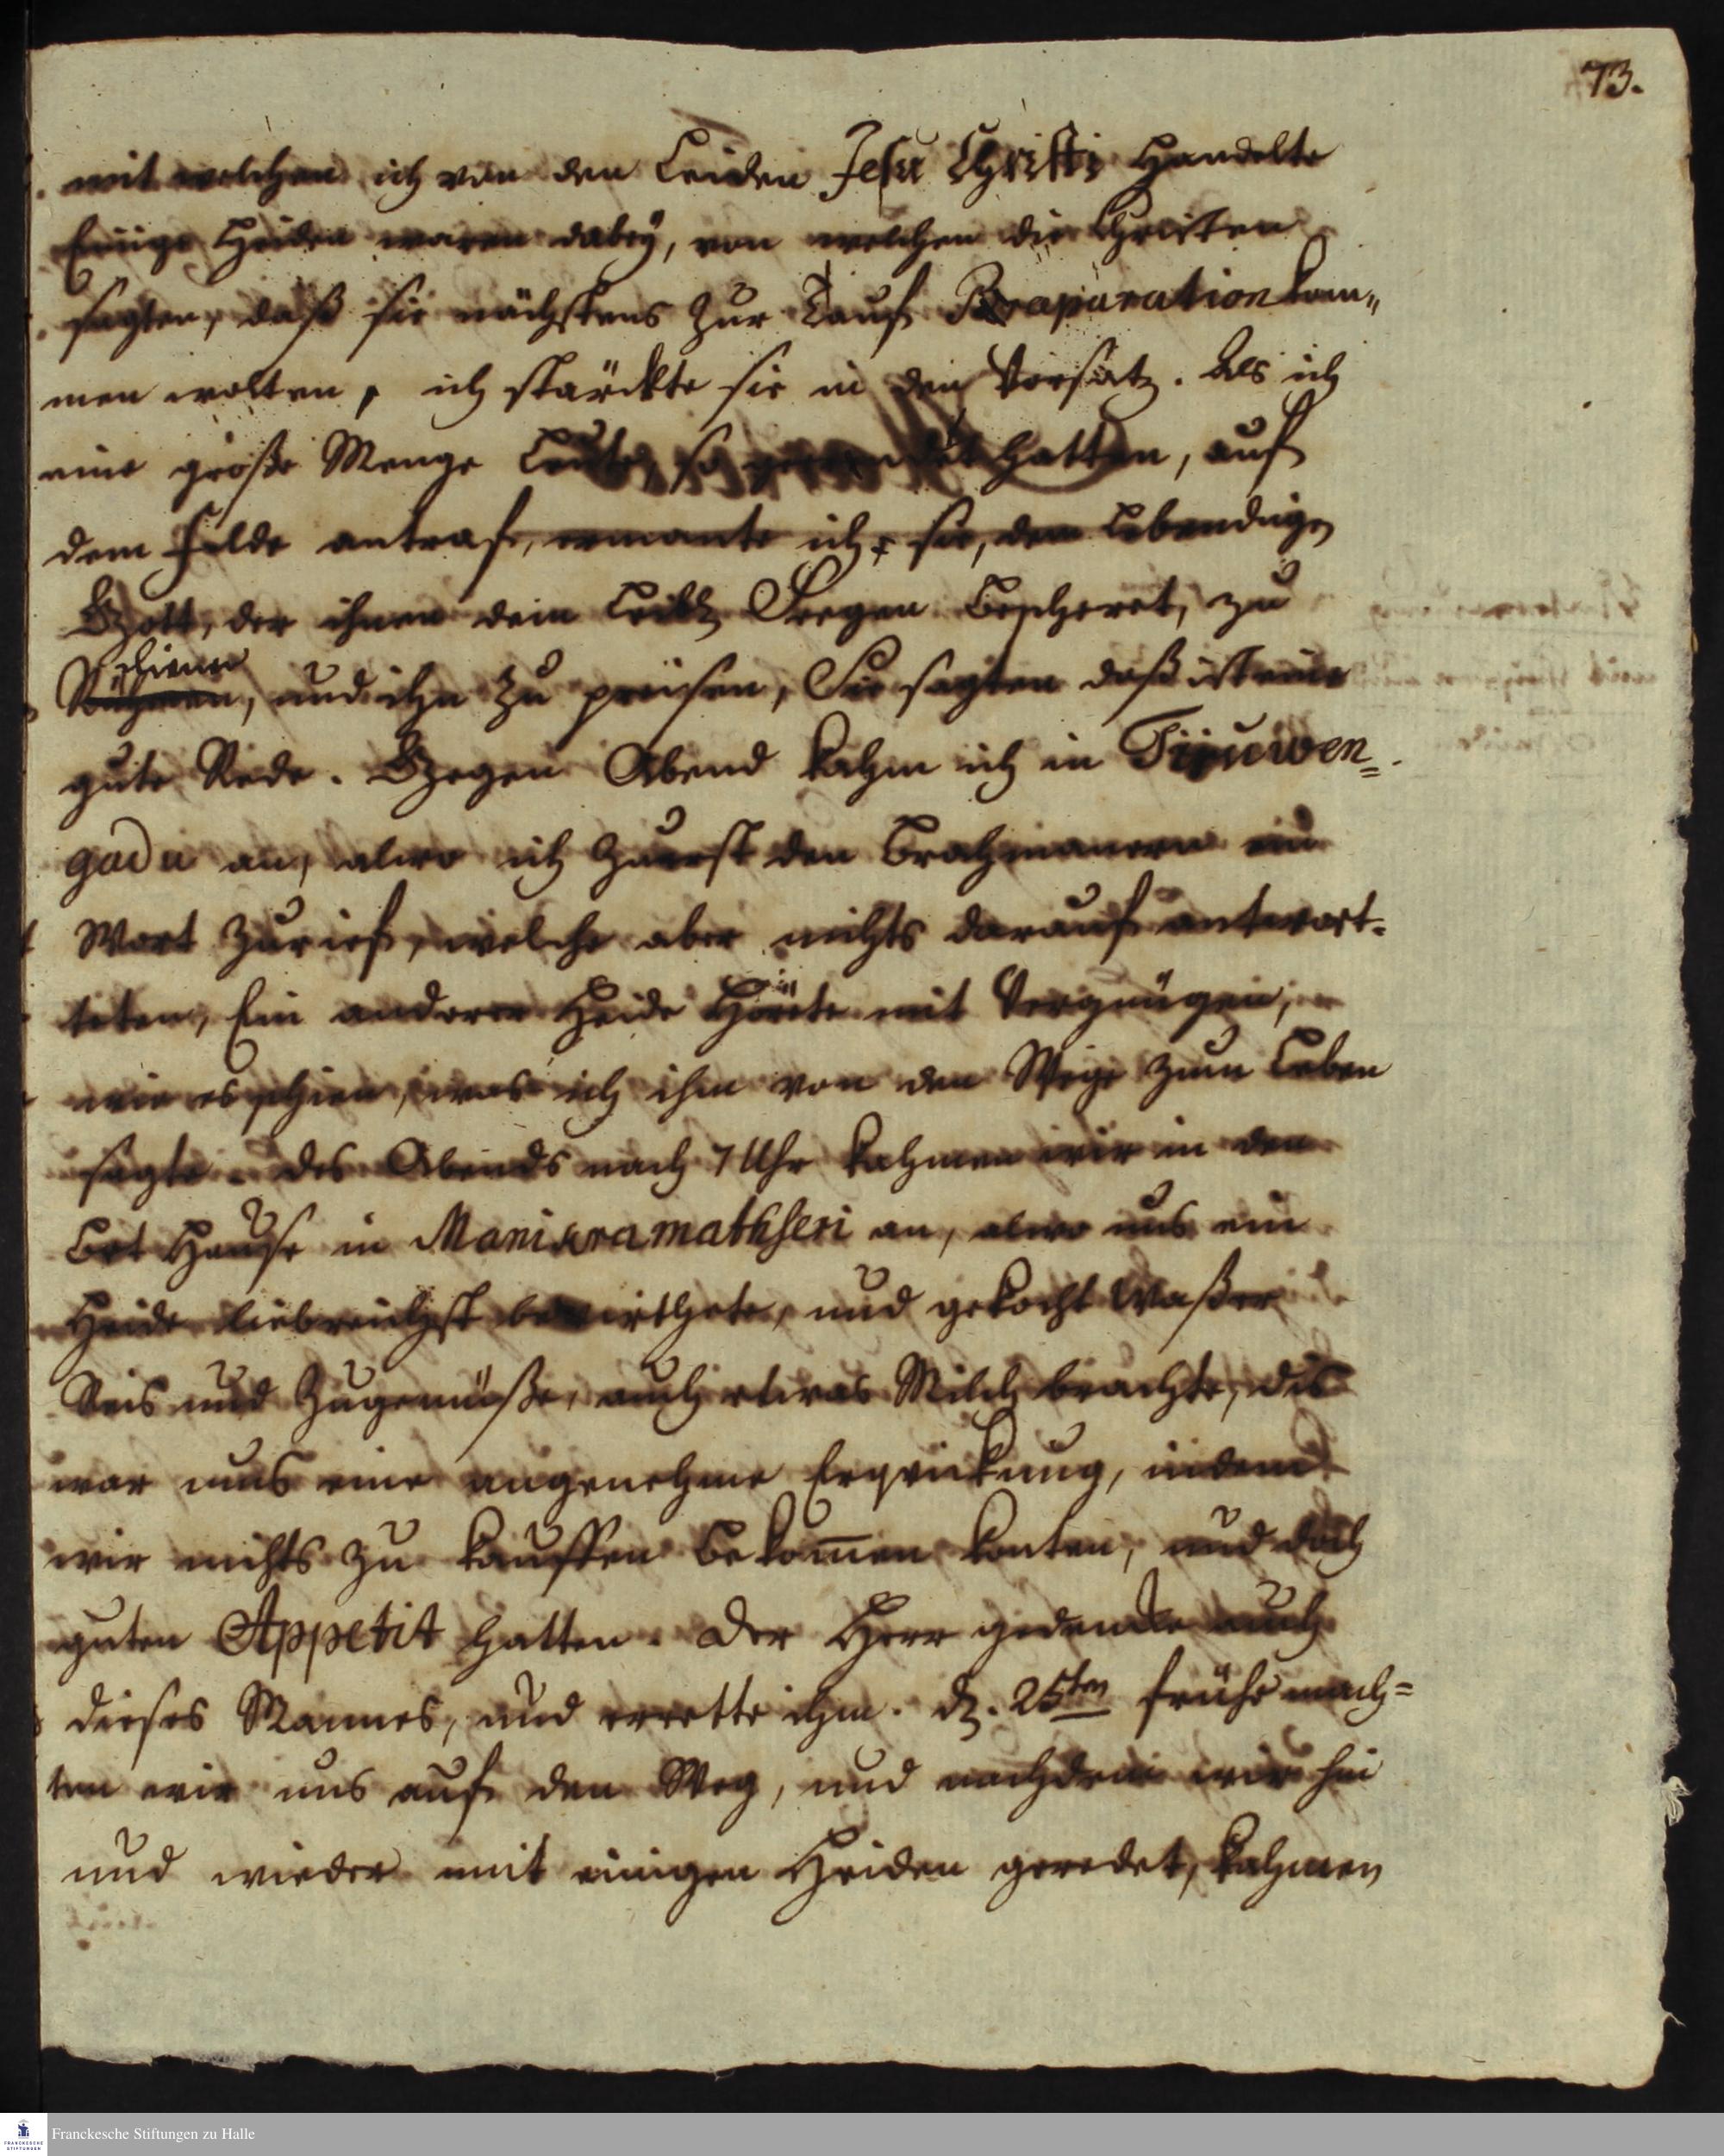 73.
mit welchen ich von den Leiden Jesu Christi Handelte
Einige Heiden waren dabeÿ, von welchen die Christen
sagten, daß sie nächstens zur Tauf Praeparation kom„
men wolten, ich stärckte sie in den Vorsatz. Als ich
eine große Menge Leute, so hatten, auf
dem Felde antraf, ermante ich sie, dem Lebendigen
Gott, der ihnen den Seegen bescheret, zu
dienen, und ihn zu preisen, Sie sagten daß ist eine
gute Rede. Gegen Abend kahm ich in Tiruwen=
gadu an, alwo ich zuerst den Brahmanern ein
Wort zurief, welche aber nichts darauf antwort-
teten, Ein anderer Heide Hörete mit Vergnügen,
wie es schien, was ich ihm von den Wege zum Leben
sagte. Des Abends nach 7 Uhr kahmen wir in den
Bet Hause in Maniramathseri an, alwo uns ein
Heide liebreichst bewirthete, und gekocht Waßer
Reis und Zugemüße, auch etwas Milch brachte, dis
war uns eine angenehme Erqvickung, indem
wir nichts zu kauffen bekom̄en konten, und doch
guten Appetit hatten. Der Herr gedencke auch
dieses Mannes, und errette ihm. d. 25ten frühe mach=
ten wir uns auf den Weg, und nachdem wir hin
und wieder mit einigen Heiden geredet, kahmen
Franckesche Stiftungen zu Halle